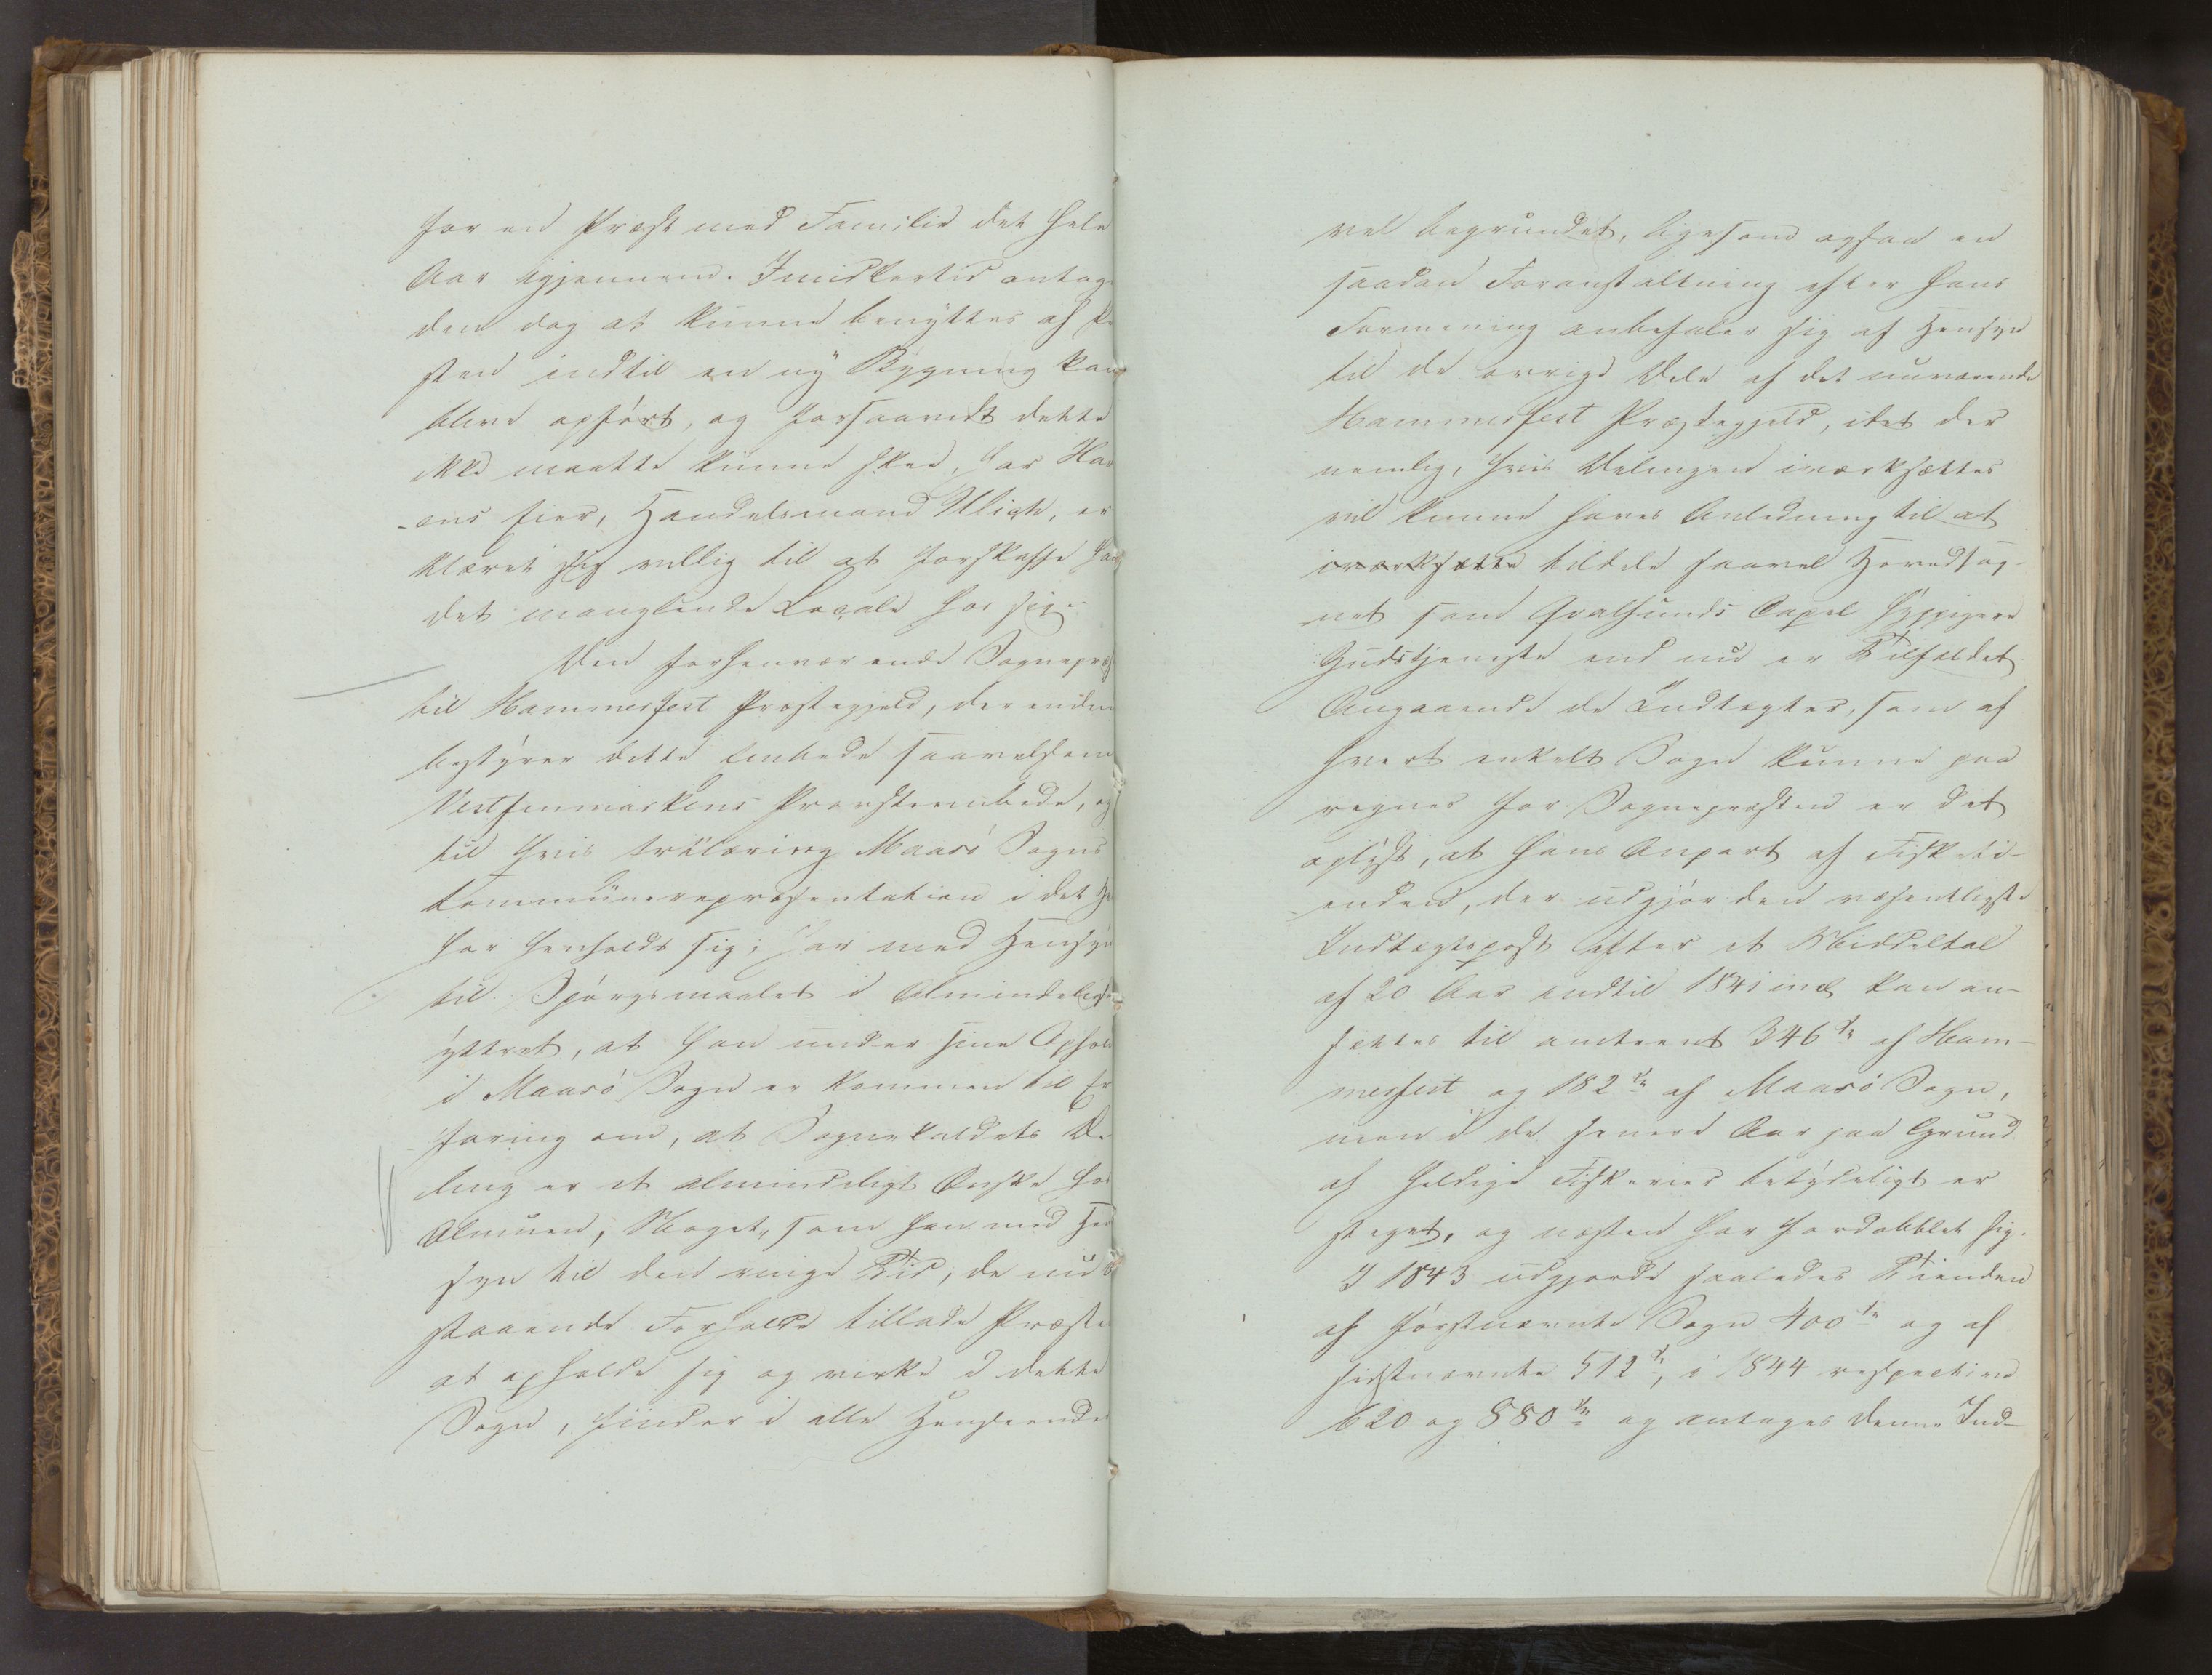 for en Præst med Familie det hele
Aar igjennem. Imidlertid antag
den dog at kunne benyttes af Pr
sten indtil en ny Bygning kan
blive opført, og forsaavidt dette
ikke maatte kunne skee, har Hav
-ens Eier, Handelsmand Ulich, er
klæret sig villig til at forskaffe ham
det manglende Locale hos sig.-
Den forhenværende Sognepræs
til Hammerfest Præstegjeld, der endnu
bestyrer dette Embede saavelsom
Vestfinmarkens Provsteembede, og
til hvis Erklæring Maasø Sogns
Kommunerepræsentation i det He
har henholdt sig, har med Hensyn
til Spørgsmaalet i Almindelighed
yttret, at han under sine Ophold
i Maasø Sogn er kommen til Er
-faring om, at Sognekaldets De-
ling er et almindeligt Ønske hos
Almuen, Noget, som han med Hen
syn til den ringe Tid, de nu be
staaende Forholde tillade Præste
at opholde sig og virke i dette
Sogn, finder i alle Henseender
vel begrundet, ligesom ogsaa en
saadan Foranstaltning efter hans
Formening anbefaler sig af Hensyn
til de øvrige Dele af det nuværende
Hammerfest Præstegjeld, idet der
nemlig, hvis Delingen iværksættes
vil kunne haves Anledning til at
iværksætte tildele saavel Hovedsog-
net som Qvalsunds Capel hyppigere
Gudstjeneste end nu er Tilfældet
Angaaende de Indtægter, som af
hvert enkelt Sogn kunne paa
regnes for Sognepræsten er det
oplyst, at hans Anpart af Fisketi-
-enden, der udgjør den væsentligste
Indtægtspost efter et Middeltal
af 20 Aar indtil 1841 incl kan an-
sættes til omtrent 346 af Ham-
merfest og 182 af Maasø Sogn,
men i de senere Aar paa Grund
af heldige Fiskerier betydeligt er
steget, og næsten har fordobblet sig.
I 1843 udgjorde saaledes Tienden
af førstnævnte Sogn 400 og af
sidstnævnte 512, i 1844 respective
620 og 880 og antages denne Ind-